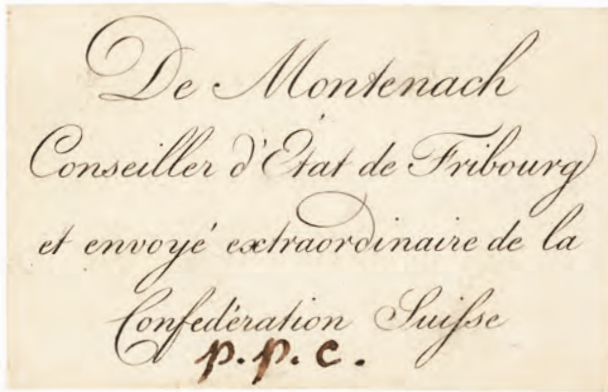 De Montenach
Conseiller d'État de Fribourg
et envoyé extraordinaire de la
Confedération Suisse
p.p.c.